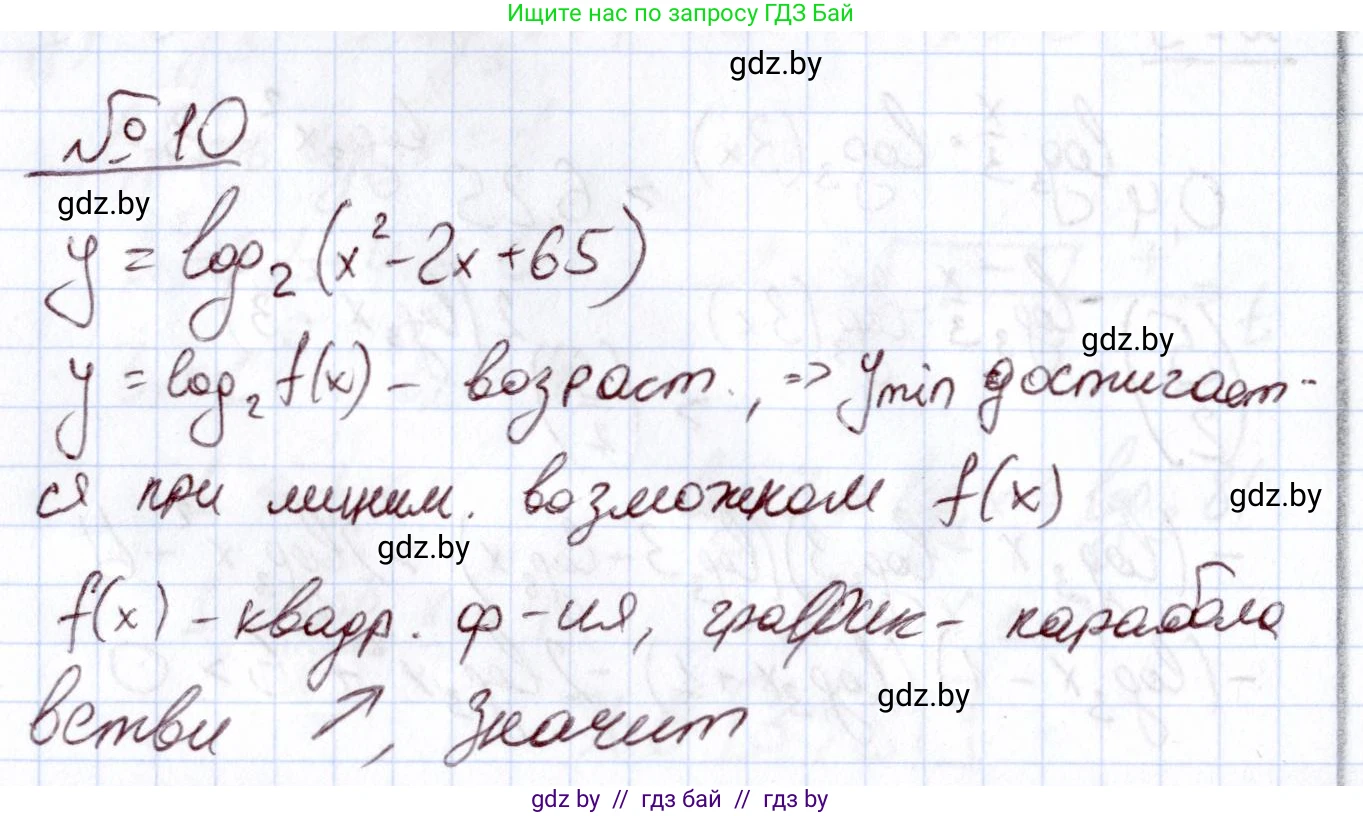 Ищите нас по запросу ГДЗ Бай
gdz.by
№ 10
gdz.by
y = log₂ (x² - 2x + 65)
gdz.by
y = log₂ f(x) - возраст., => y min достигает-
ся при миним. возможном f(x)
gdz.by
gdz.by
f(x) - квадр. ф-ия, график - парабола
gdz.by
ветви ↗, значит
gdz by // гдз бай // гдз by